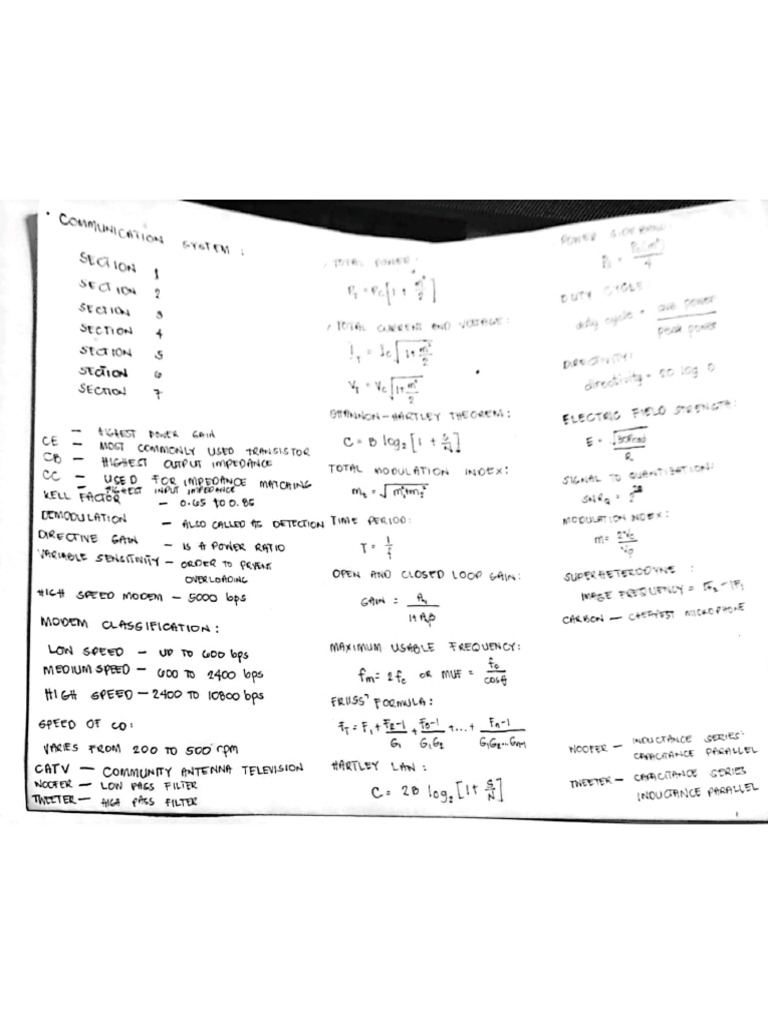 • COMMUNICATION SYSTEM :
SECTION 1
SECTION 2
SECTION 3
SECTION 4
SECTION 5
SECTION 6
SECTION 7
CE — HIGHEST POWER GAIN
— MOST COMMONLY USED TRANSISTOR
CB — HIGHEST OUTPUT IMPEDANCE
CC — USED FOR IMPEDANCE MATCHING
— HIGHEST INPUT IMPEDANCE
KELL FACTOR — 0.65 TO 0.85
DEMODULATION — ALSO CALLED AS DETECTION
DIRECTIVE GAIN — IS A POWER RATIO
VARIABLE SENSITIVITY — ORDER TO
OVERLOADING
HIGH SPEED MODEM — 5000 bps
MODEM CLASSIFICATION :
LOW SPEED — UP TO 600 bps
MEDIUM SPEED — 600 TO 2400 bps
HIGH SPEED — 2400 TO 10800 bps
SPEED OF CD:
VARIES FROM 200 TO 500 rpm
CATV — COMMUNITY ANTENNA TELEVISION
WOOFER — LOW PASS FILTER
TWEETER — HIGH PASS FILTER
TOTAL POWER:
P_T = P_C [1 + m²/2]
TOTAL CURRENT AND VOLTAGE:
I_T = I_C √(1 + m²/2)
V_T = V_C √(1 + m²/2)
SHANNON-HARTLEY THEOREM:
C = B log₂ [1 + S/N]
TOTAL MODULATION INDEX:
m_t = √(m₁²+m₂²)
TIME PERIOD:
T = 1/f
OPEN AND CLOSED LOOP GAIN:
GAIN = A_v / 1+A_vβ
MAXIMUM USABLE FREQUENCY:
fm = 2fc OR MUF = fc/cosθ
FRIISS' FORMULA:
F_T = F₁ + F₂-1/G₁ + F₃-1/G₁G₂ + ... + Fn-1/G₁G₂...Gn-1
HARTLEY LAW:
C = 2B log₂ [1 + S/N]
POWER SIDEBAND:
P_s = P_c(m²)/4
DUTY CYCLE:
duty cycle = ave power / peak power
DIRECTIVITY:
directivity = log D
ELECTRIC FIELD STRENGTH:
E = / R
SIGNAL TO QUANTIZATION:
SNR_Q =
MODULATION INDEX:
m =
SUPERHETERODYNE :
IMAGE FREQUENCY =
CARBON — CHEAPEST MICROPHONE
WOOFER — INDUCTANCE SERIES
CAPACITANCE PARALLEL
TWEETER — CAPACITANCE SERIES
INDUCTANCE PARALLEL
1